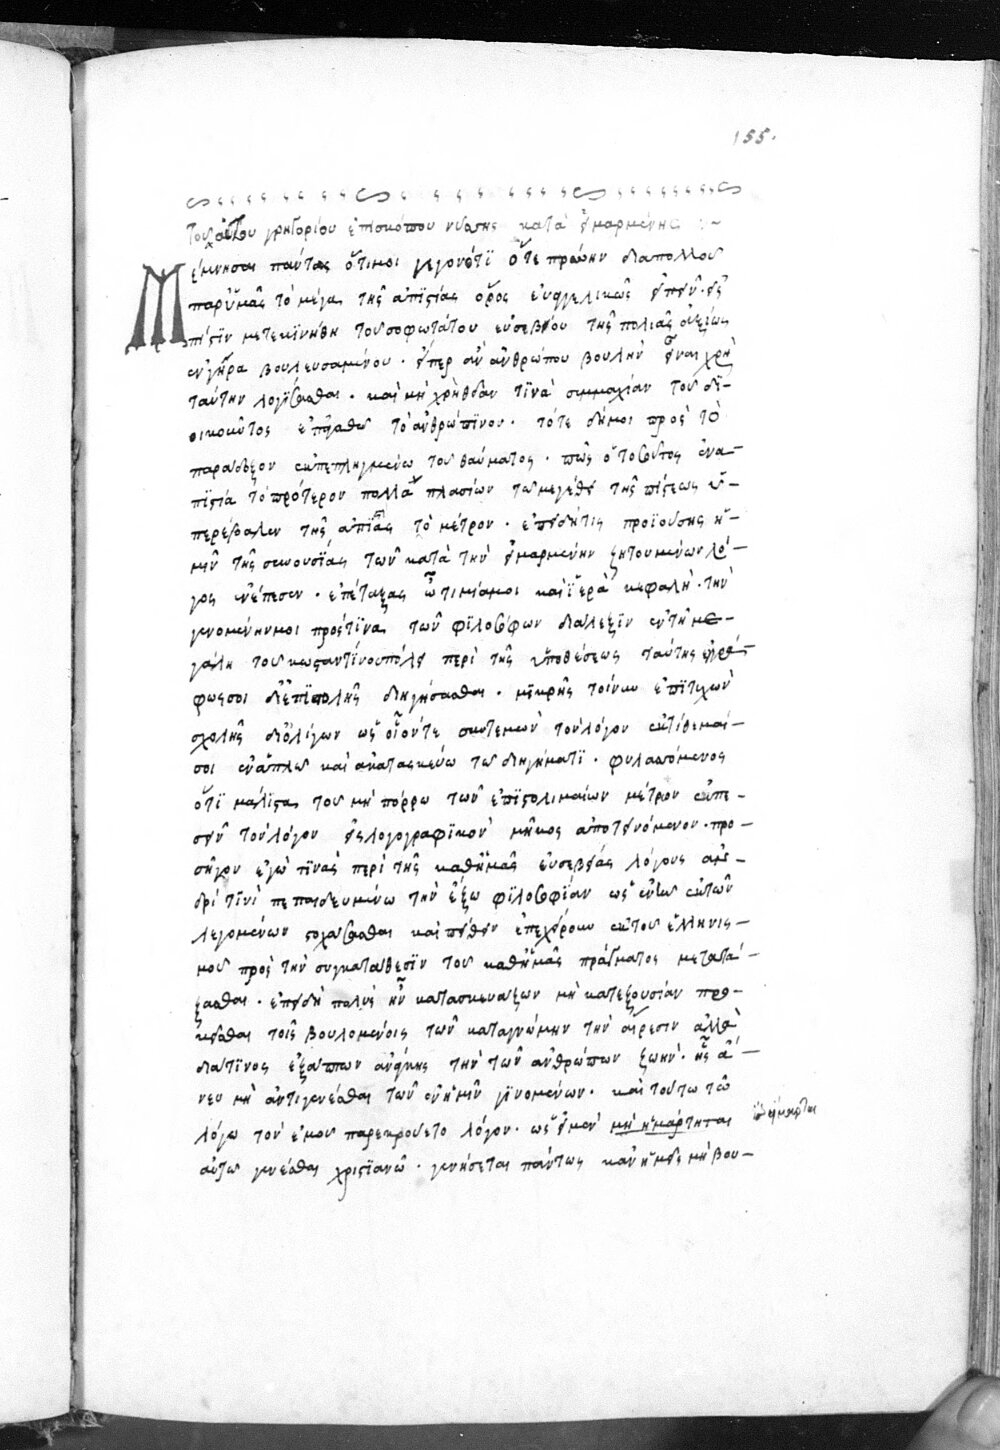 155.
τοῦ αὐτοῦ γρηγορίου ἐπισκόπου νύσσης κατὰ εἱμαρμένης :~
Μέμνησαι πάντως ὅτι μοι γεγονότι ὅτε πρώην διαπολλοῦ
παρ' ὑμᾶς τὸ μέγα τῆς ἀπιστίας ὄρος εὐαγγελικῶς εἰπεῖν· εἰς
πίστϊν μετεκϊνήθη τοῦ σοφωτάτου εὐσεβίου τῆς πολιᾶς ἀξίως
ἐν γήρα βουλευσαμένου· εἴπερ οὖν ἀνθρώπου βουλὴν εἶναι χρὴ
ταύτην λογίσασθαι· καὶ μὴ χρησθαν τϊνὰ συμμαχίαν τοῦ δϊ-
οικοῦντος τὸ ἀνθρώπϊνον· τότε δή μοι πρὸς τὸ
παράδοξον ἐκπεπληγμένω τοῦ θαύματος· πῶς ὁ τοσοῦτος ἐν ἀ-
πϊστία τὸ πρότερον πολλα πλασίων τῶ μεγέθει τῆς πίστεως ὑ-
περέβαλεν τῆς ἀπιστίας τὸ μέτρον· ἐπειδήτις προϊούσης ἡ-
μῖν τῆς συνουσίας τῶν κατὰ τὴν εἱμαρμένην ζητουμένων λό-
γος ἐνέπεσεν· ἐπέταξας ὦ τιμία μοι καὶ ἱερὰ κεφαλὴ· τὴν
γενομένην μοι πρός τϊνα τῶν φϊλοσόφων διάλεξϊν ἐν τῆ με-
γάλη τοῦ κωνσταντίνου πόλει περὶ τῆς ὑποθέσεως ταύτης
σοι δϊ' ἐπιστολῆς διηγήσασθαι· μικρῆς τοίνυν ἐπϊτυχὼν
σχολῆς δι' ὀλίγων ὡς οἷόν τε συντεμὼν τὸν λόγον ἐκτίθεμαί-
σοι ἐν ἁπλῶ καὶ ἀκατασκεύω τῶ διηγήματϊ· φυλασσόμενος
ὅτϊ μάλϊστα τοῦ μὴ πόρρω τῶν ἐπϊστολιμαίων μέτρων ἐκπε-
σεῖν τὸν λόγον εἰς λογογραφϊκὸν μῆκος ἀποτεινόμενον· προ-
σῆγον ἐγὼ τϊνὰς περὶ τῆς καθ' ἡμᾶς εὐσεβείας λόγους ἀν-
δρί τϊνὶ πεπαιδευμένω τὴν ἔξω φϊλοσοφίαν ὡς ἐκ τῶν
λεγομένων στοχάσασθαι καὶ πείθειν ἐπεχείρουν ἐκ τοῦ ἑλληνισ-
μοῦ πρὸς τὴν συγκατάθεσϊν τοῦ καθ' ἡμᾶς πράγματος μετατά-
ξασθαι· ἐπειδὴ πολὺς ἦν κατασκευάζων μὴ κατεξουσίαν προ-
κεῖσθαι τοῖς βουλομένοις τῶν καταγνώμην τὴν αἵρεσιν ἀλλὰ
διάτϊνος ἐξάπτων ἀνάγκης τὴν τῶν ἀνθρώπων ζωὴν· ἧς ἄ-
νευ μὴ ἀντιγενέσθαι τῶν ἐν ἡμῖν γϊνομένων· καὶ τούτω τῶ
λόγω τὸν ἐμοῦ παρεκρούετο λόγον· ὡς εἰ μὲν μὴ ἡμάρτηται
αὐτῶ γενέσθαι χριστϊανῶ· γενήσεται πάντως κἂν ἡμεῖς μὴ βου-